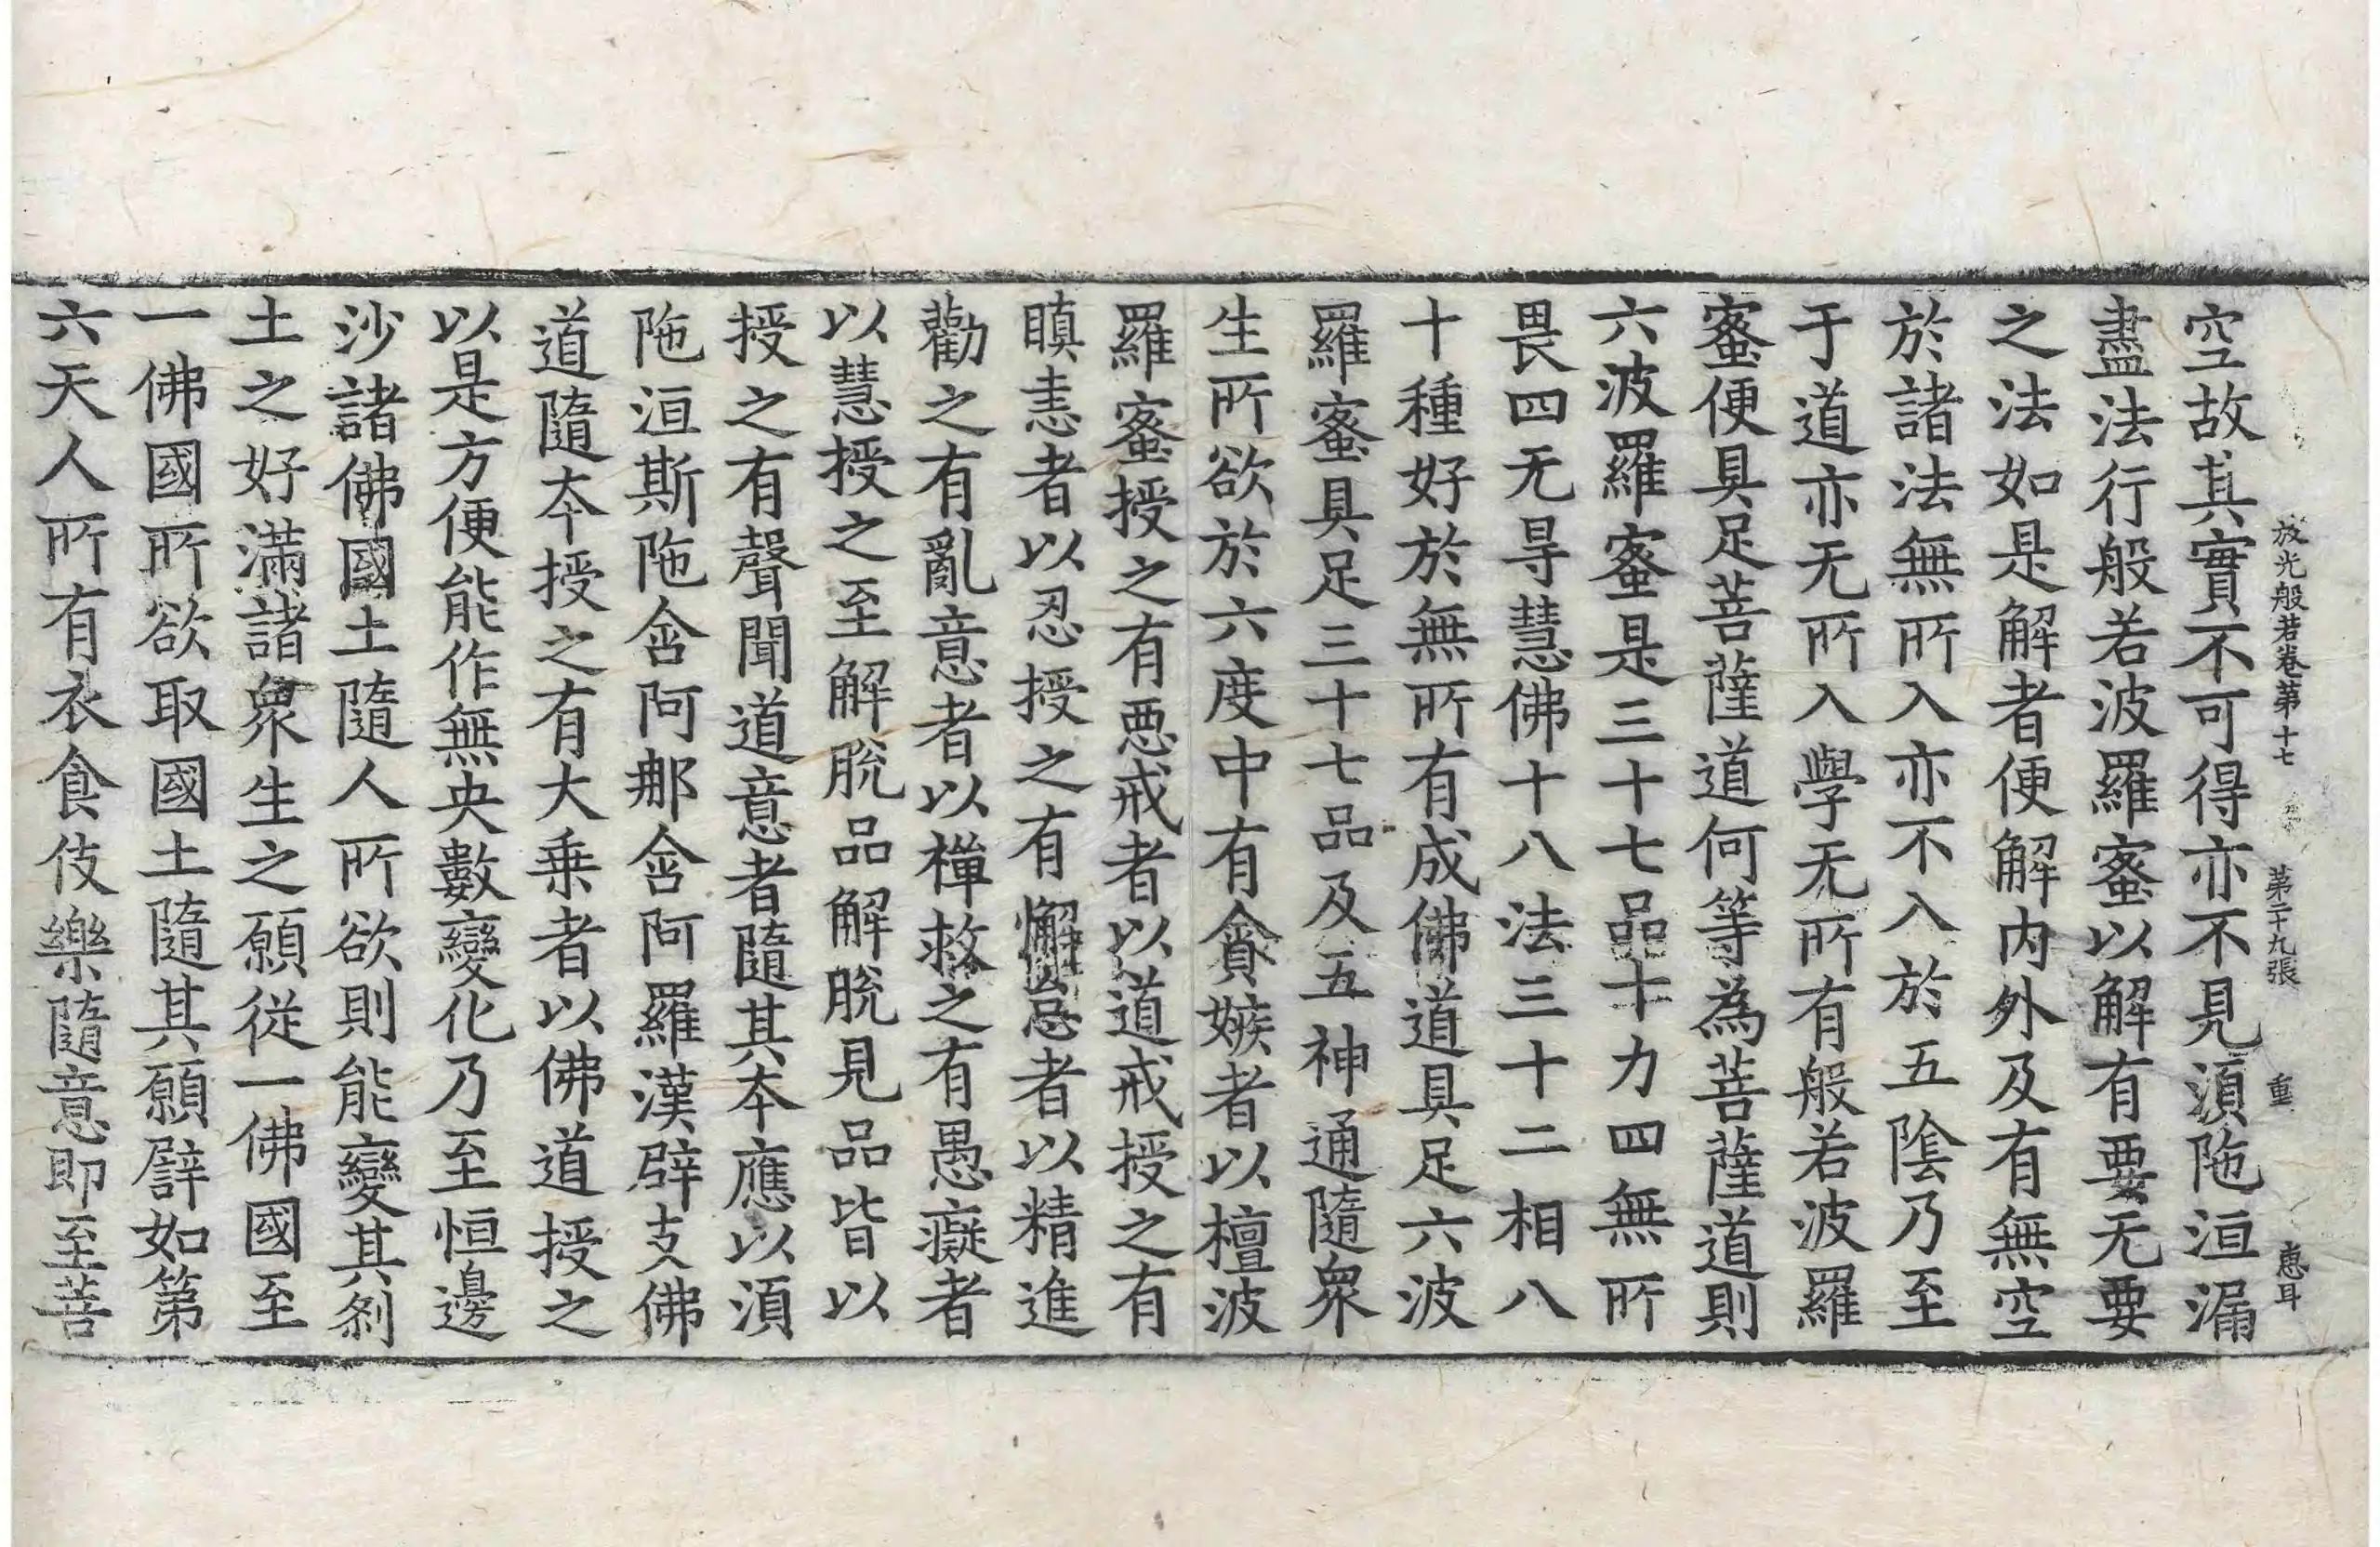 放光般若卷第十七 第二十九張 重 惠耳
空故其實不可得亦不見湏陁洹漏
盡法行般若波羅蜜以解有要无要
之法如是解者便解内外及有無空
於諸法無所入亦不入於五陰乃至
于道亦无所入學无所有般若波羅
蜜便具足菩薩道何等為菩薩道則
六波羅蜜是三十七品十力四無所
畏四无㝵慧佛十八法三十二相八
十種好於無所有成佛道具足六波
羅蜜具足三十七品及五神通隨衆
生所欲於六度中有貪嫉者以檀波
羅蜜授之有惡戒者以道戒授之有
瞋恚者以忍授之有懈怠者以精進
勸之有亂意者以禪救之有愚癡者
以慧授之至解脫品解脫見品皆以
授之有聲聞道意者隨其本應以湏
陁洹斯陁含阿那含阿羅漢辟支佛
道隨本授之有大乗者以佛道授之
以是方便能作無央數變化乃至恒邊
沙諸佛國土隨人所欲則能變其剎
土之好滿諸衆生之願從一佛國至
一佛國所欲取國土隨其願譬如第
六天人所有衣食伎樂隨意即至菩